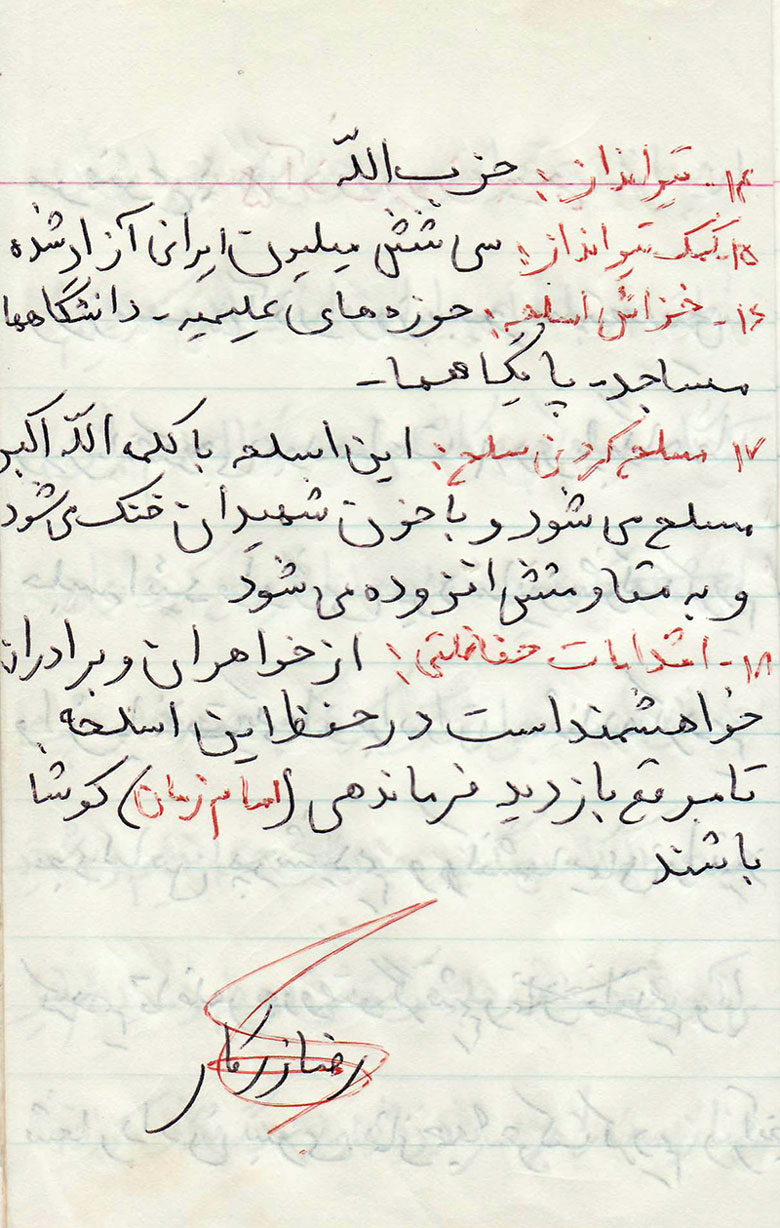 ۱۴- تیرانداز: حزب اللّه
۱۵- کمک تیرانداز: سی شش میلیون ایرانی آزاد شده
۱۶- خزائن اسلحه: حوزه های علیمیه - دانشگاهها
مساجد - پایگاهها -
۱۷ مسلح کردن سلح: این اسلحه با کلمه اللّه اکبر
مسلح می شود و با خون شهیدان خنک می شود
و به مقاومتش افزوده می شود
۱۸- اقدامات حفاظتی: از خواهران و برادران
خواهشمند است در حفظ این اسلحه
تا موقع بازدید فرماندهی (امام زمان) کوشا
باشند